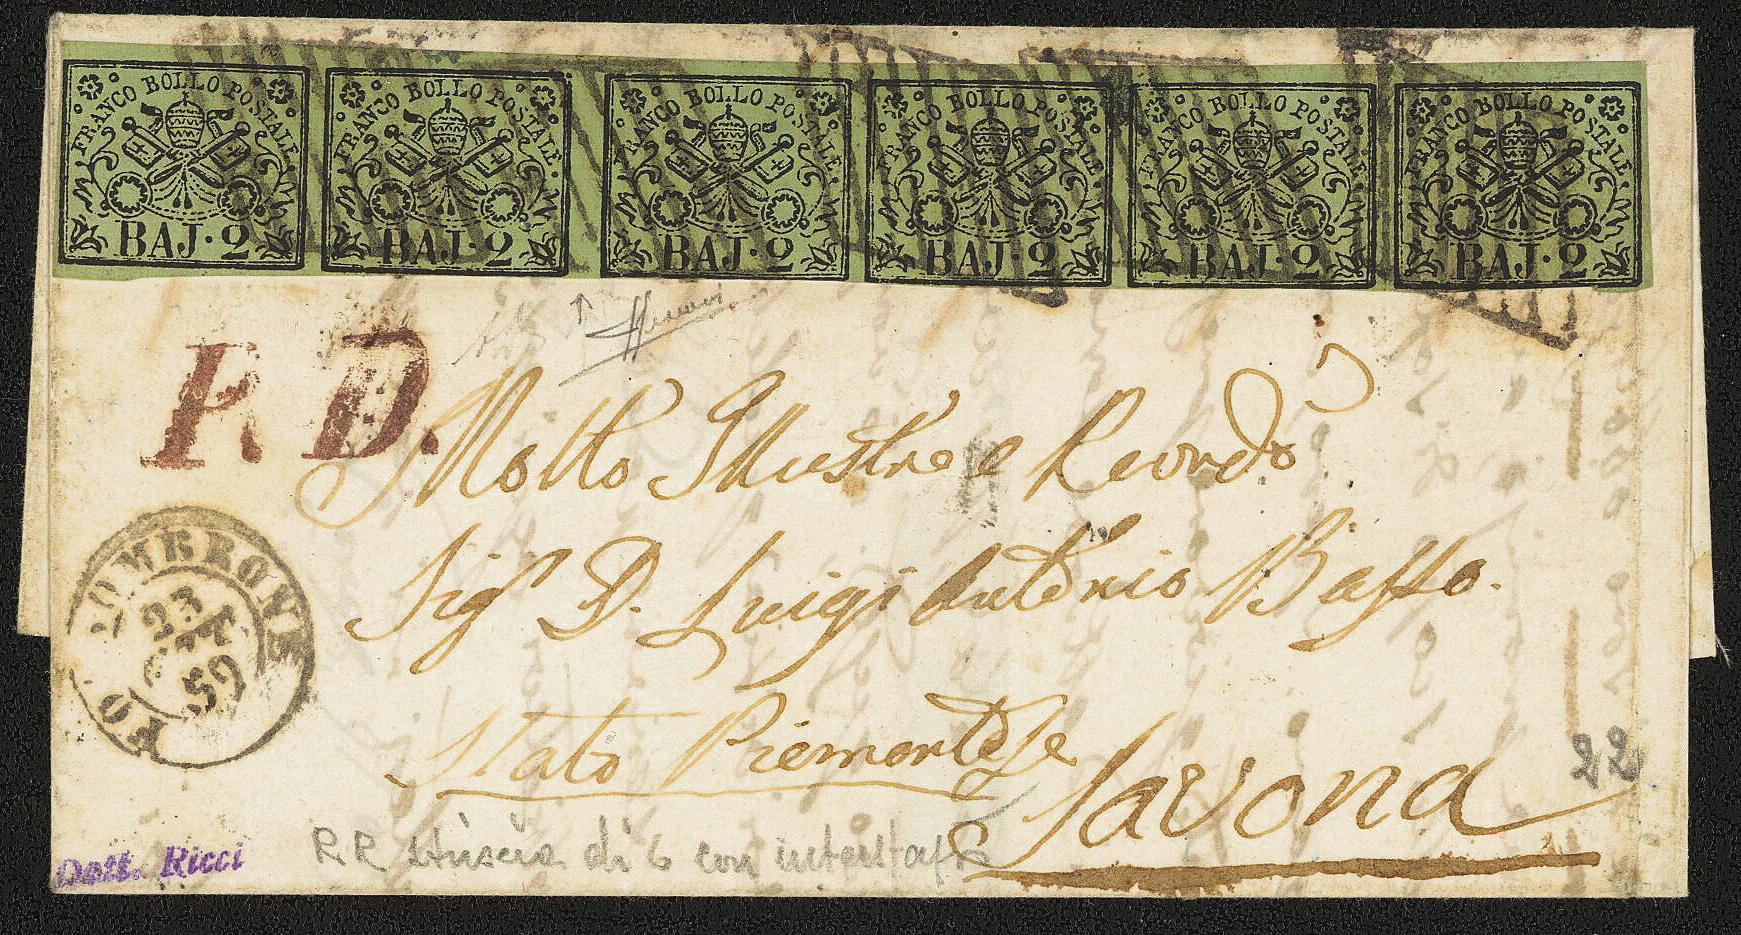 FRANCO BOLLO POSTALE
BAJ·2
FRANCO BOLLO POSTALE
BAJ·2
FRANCO BOLLO POSTALE
BAJ·2
FRANCO BOLLO POSTALE
BAJ·2
FRANCO BOLLO POSTALE
BAJ·2
FRANCO BOLLO POSTALE
BAJ·2
P. D.
Molto Illustre e
Sig D. Luigi Antonio Baffo.
Stato Piemontese
Savona
23
59
22
RR striscia di 6 con
Dott. Ricci